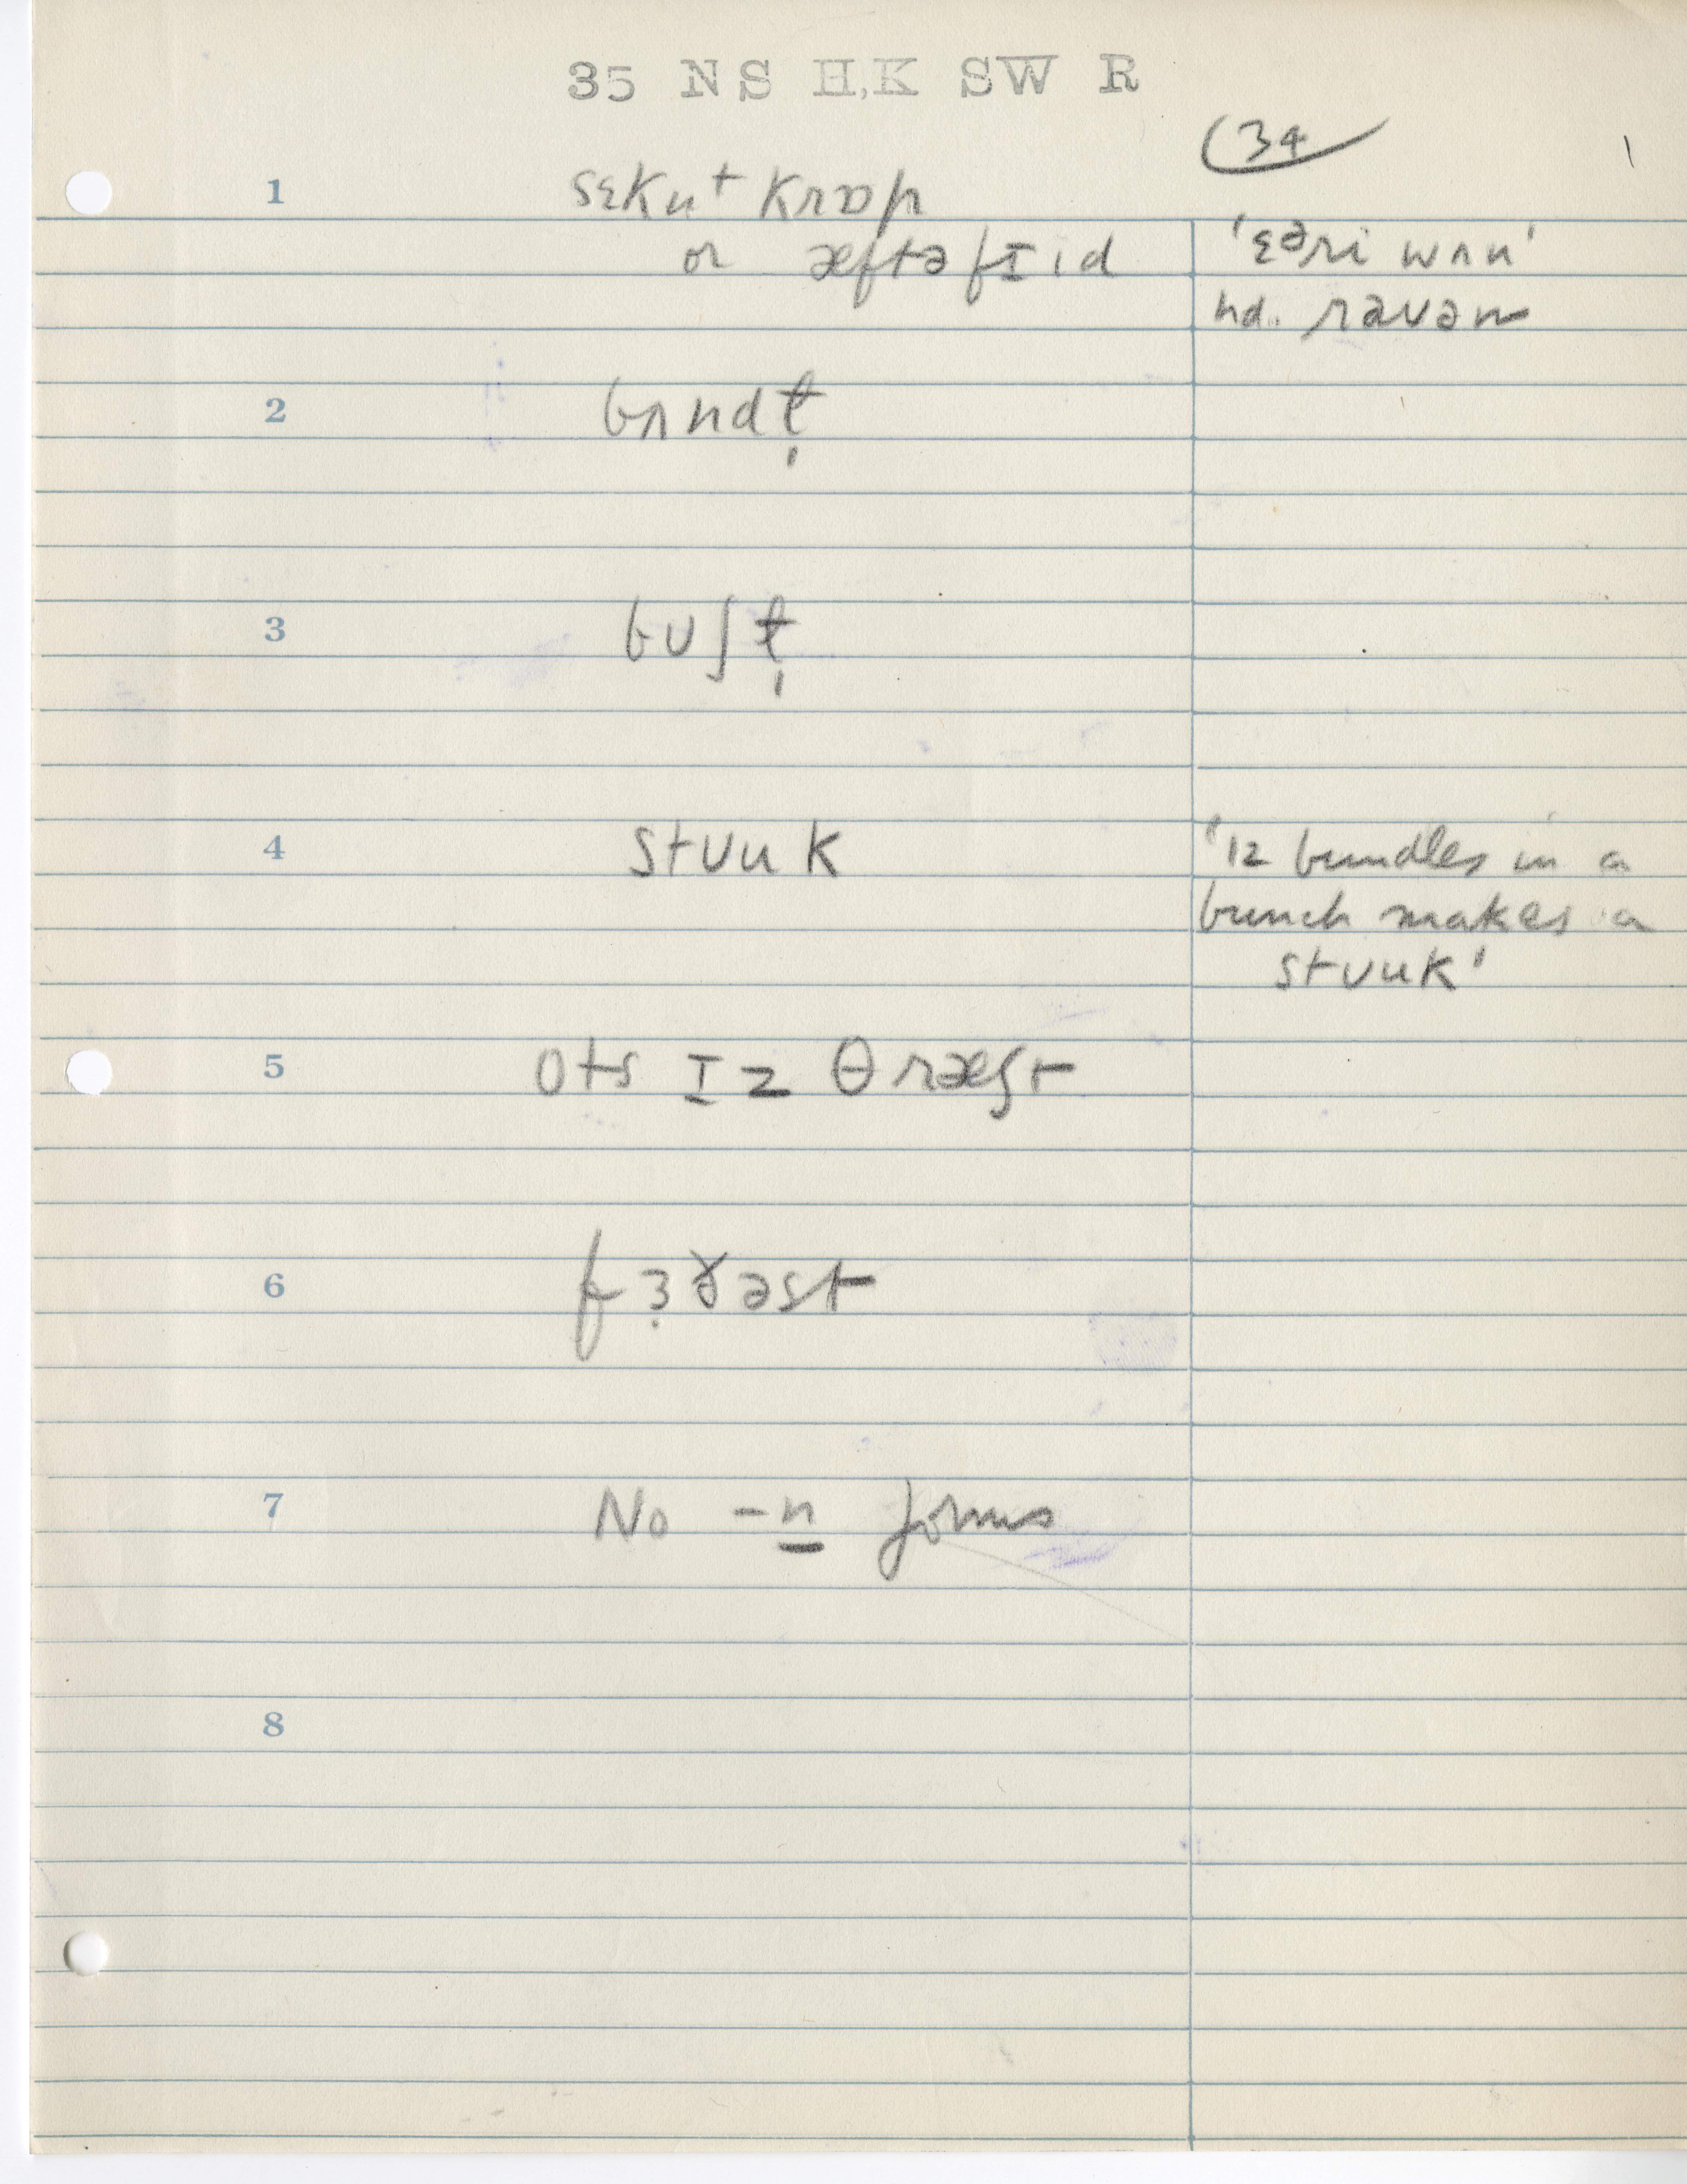 35 NS H,K SW R
(34
1 sɛkn⁺ krɒp
or æftəfɪid 'ɛəri wʌn'
hd. rɑvən
2 bʌndɫ̩
3 bʊʃɫ̩
4 stʊuk '12 bundles in a
bunch makes a
stʊuk'
5 ots ɪz θræʃt
6 fɜ̣ɚəst
7 No -n forms
8